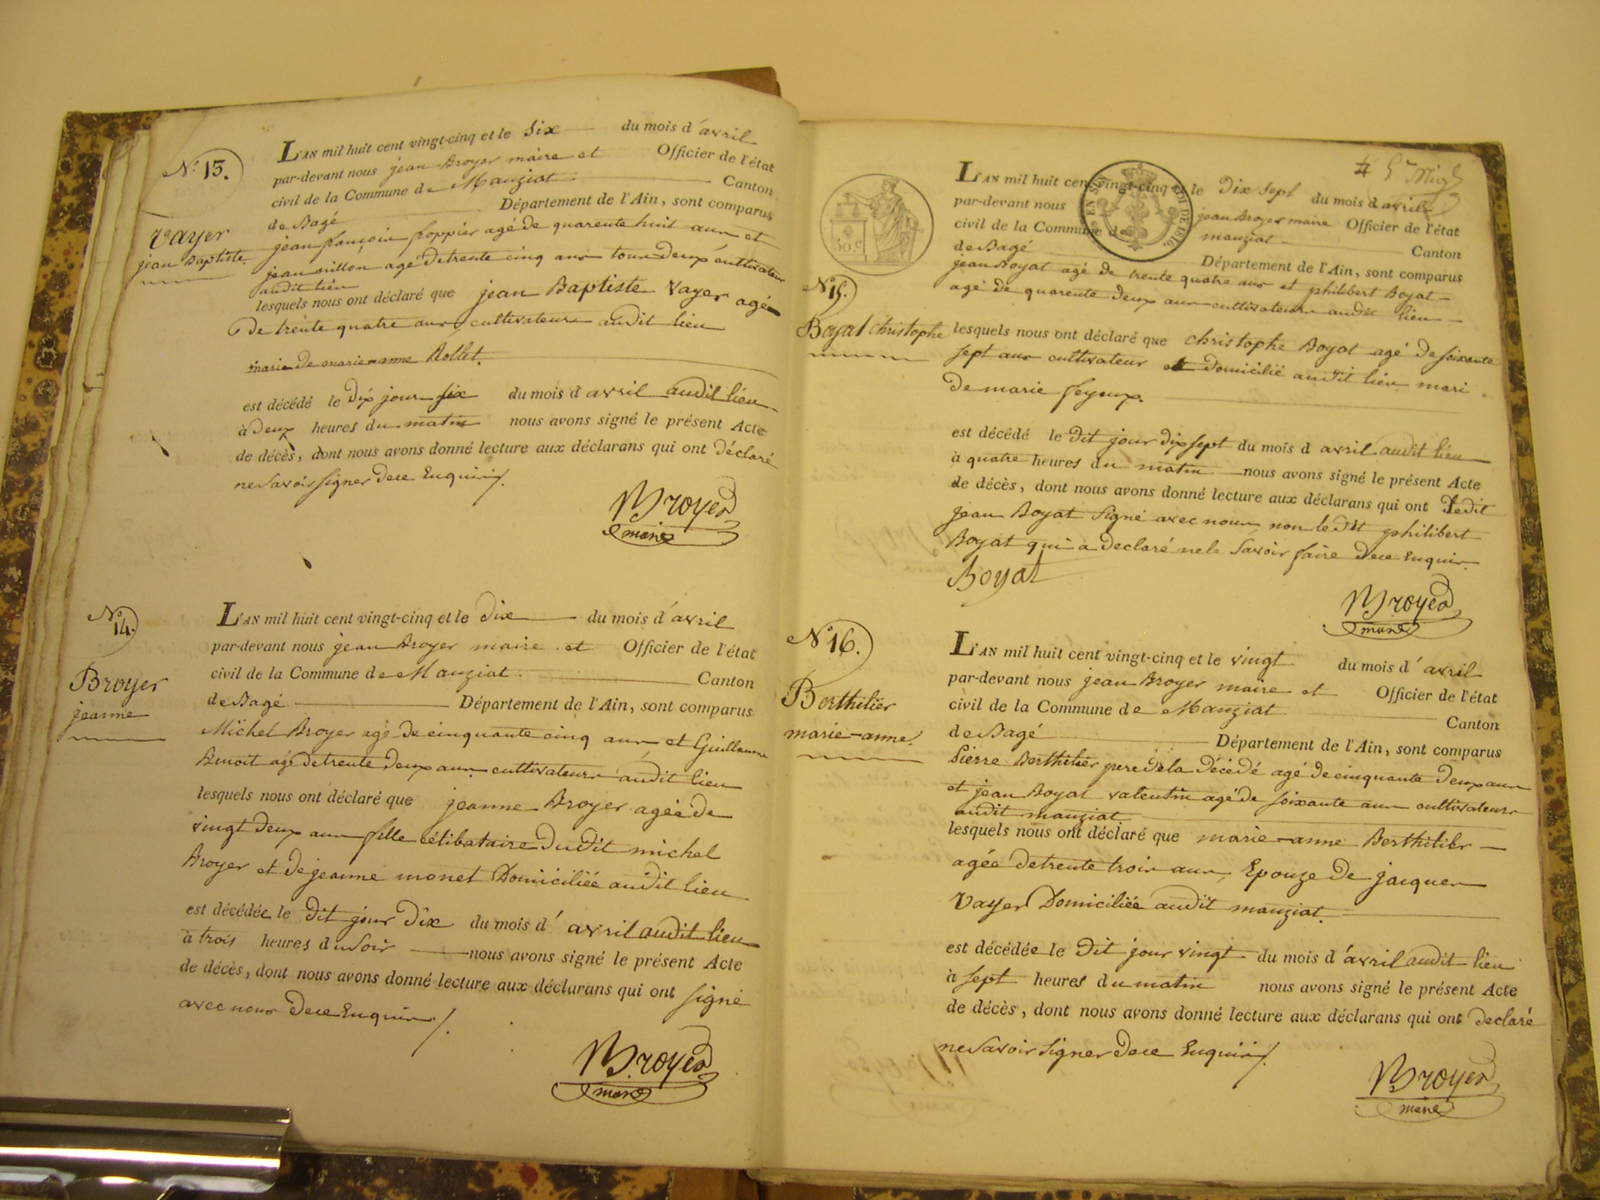 N.° 13.
Vayer
jean Baptiste.
L'AN mil huit cent vingt-cinq et le Six du mois d'avril
par-devant nous jean Broyer maire et Officier de l'état
civil de la Commune de Manziat Canton
de Bagé Département de l'Ain, sont comparus
jean françois poppier agé de quarente huit ans et
jean millon agé de trente cinq ans tous deux cultivateur
audit lieu
lesquels nous ont déclaré que jean Baptiste Vayer agé
de trente quatre ans, cultivateur audit lieu
marie de marie-anne Rollet.
est décédé le dit jour six du mois d'avril audit lieu
à deux heures du matin nous avons signé le présent Acte
de décès, dont nous avons donné lecture aux déclarans qui ont déclaré
ne savoir signer de ce Enquis /.
Broyer
maire
N.° 14.
Broyer
jeanne
L'AN mil huit cent vingt-cinq et le dix du mois d'avril
par-devant nous jean Broyer maire et Officier de l'état
civil de la Commune de Manziat Canton
de Bagé Département de l'Ain, sont comparus
Michel Broyer agé de cinquante cinq ans et Guillaume
Benoit agé de trente deux ans cultivateurs audit lieu
lesquels nous ont déclaré que jeanne Broyer agée de
vingt deux ans fille célibataire dudit michel
Broyer et de jeanne monet Domiciliée audit lieu
est décédée le dit jour dix du mois d'avril audit lieu
à trois heures du soir nous avons signé le présent Acte
de décès, dont nous avons donné lecture aux déclarans qui ont signé
avec nous de ce Enquis /.
Broyer
maire
30 c
N.° 15.
Boyat christophe
L'AN mil huit cent vingt-cinq et le Dix Sept du mois d'avril
par-devant nous jean Broyer maire Officier de l'état
civil de la Commune de manziat Canton
de Bagé Département de l'Ain, sont comparus
jean Boyat agé de trente quatre ans et philibert Boyat
agé de quarente deux ans cultivateurs audit lieu
lesquels nous ont déclaré que christophe Boyat agé de soixante
sept ans cultivateur et domicilié audit lieu mari
de marie feyeux.
est décédé le dit jour dix sept du mois d'avril audit lieu
à quatre heures du matin nous avons signé le présent Acte
de décès, dont nous avons donné lecture aux déclarans qui ont Ledit
jean Boyat signé avec nous non le dit philibert
Boyat qui a declaré ne le savoir faire de ce Enquis
Boyat
Broyer
maire
N.° 16.
Berthilier
marie-anne.
L'AN mil huit cent vingt-cinq et le vingt du mois d'avril
par-devant nous jean Broyer maire et Officier de l'état
civil de la Commune de Manziat Canton
de Bagé Département de l'Ain, sont comparus
Pierre Berthilier pere de la décédé agé de cinquante deux ans
et jean Boyat valentin agé de soixante ans cultivateurs
audit manziat
lesquels nous ont déclaré que marie-anne Berthilier
agée de trente trois ans, Epouze de jacques
Vayer Domiciliée audit manziat.
est décédée le dit jour vingt du mois d'avril audit lieu
à sept heures du matin nous avons signé le présent Acte
de décès, dont nous avons donné lecture aux déclarans qui ont declaré
ne savoir signer de ce Enquis /.
Broyer
maire